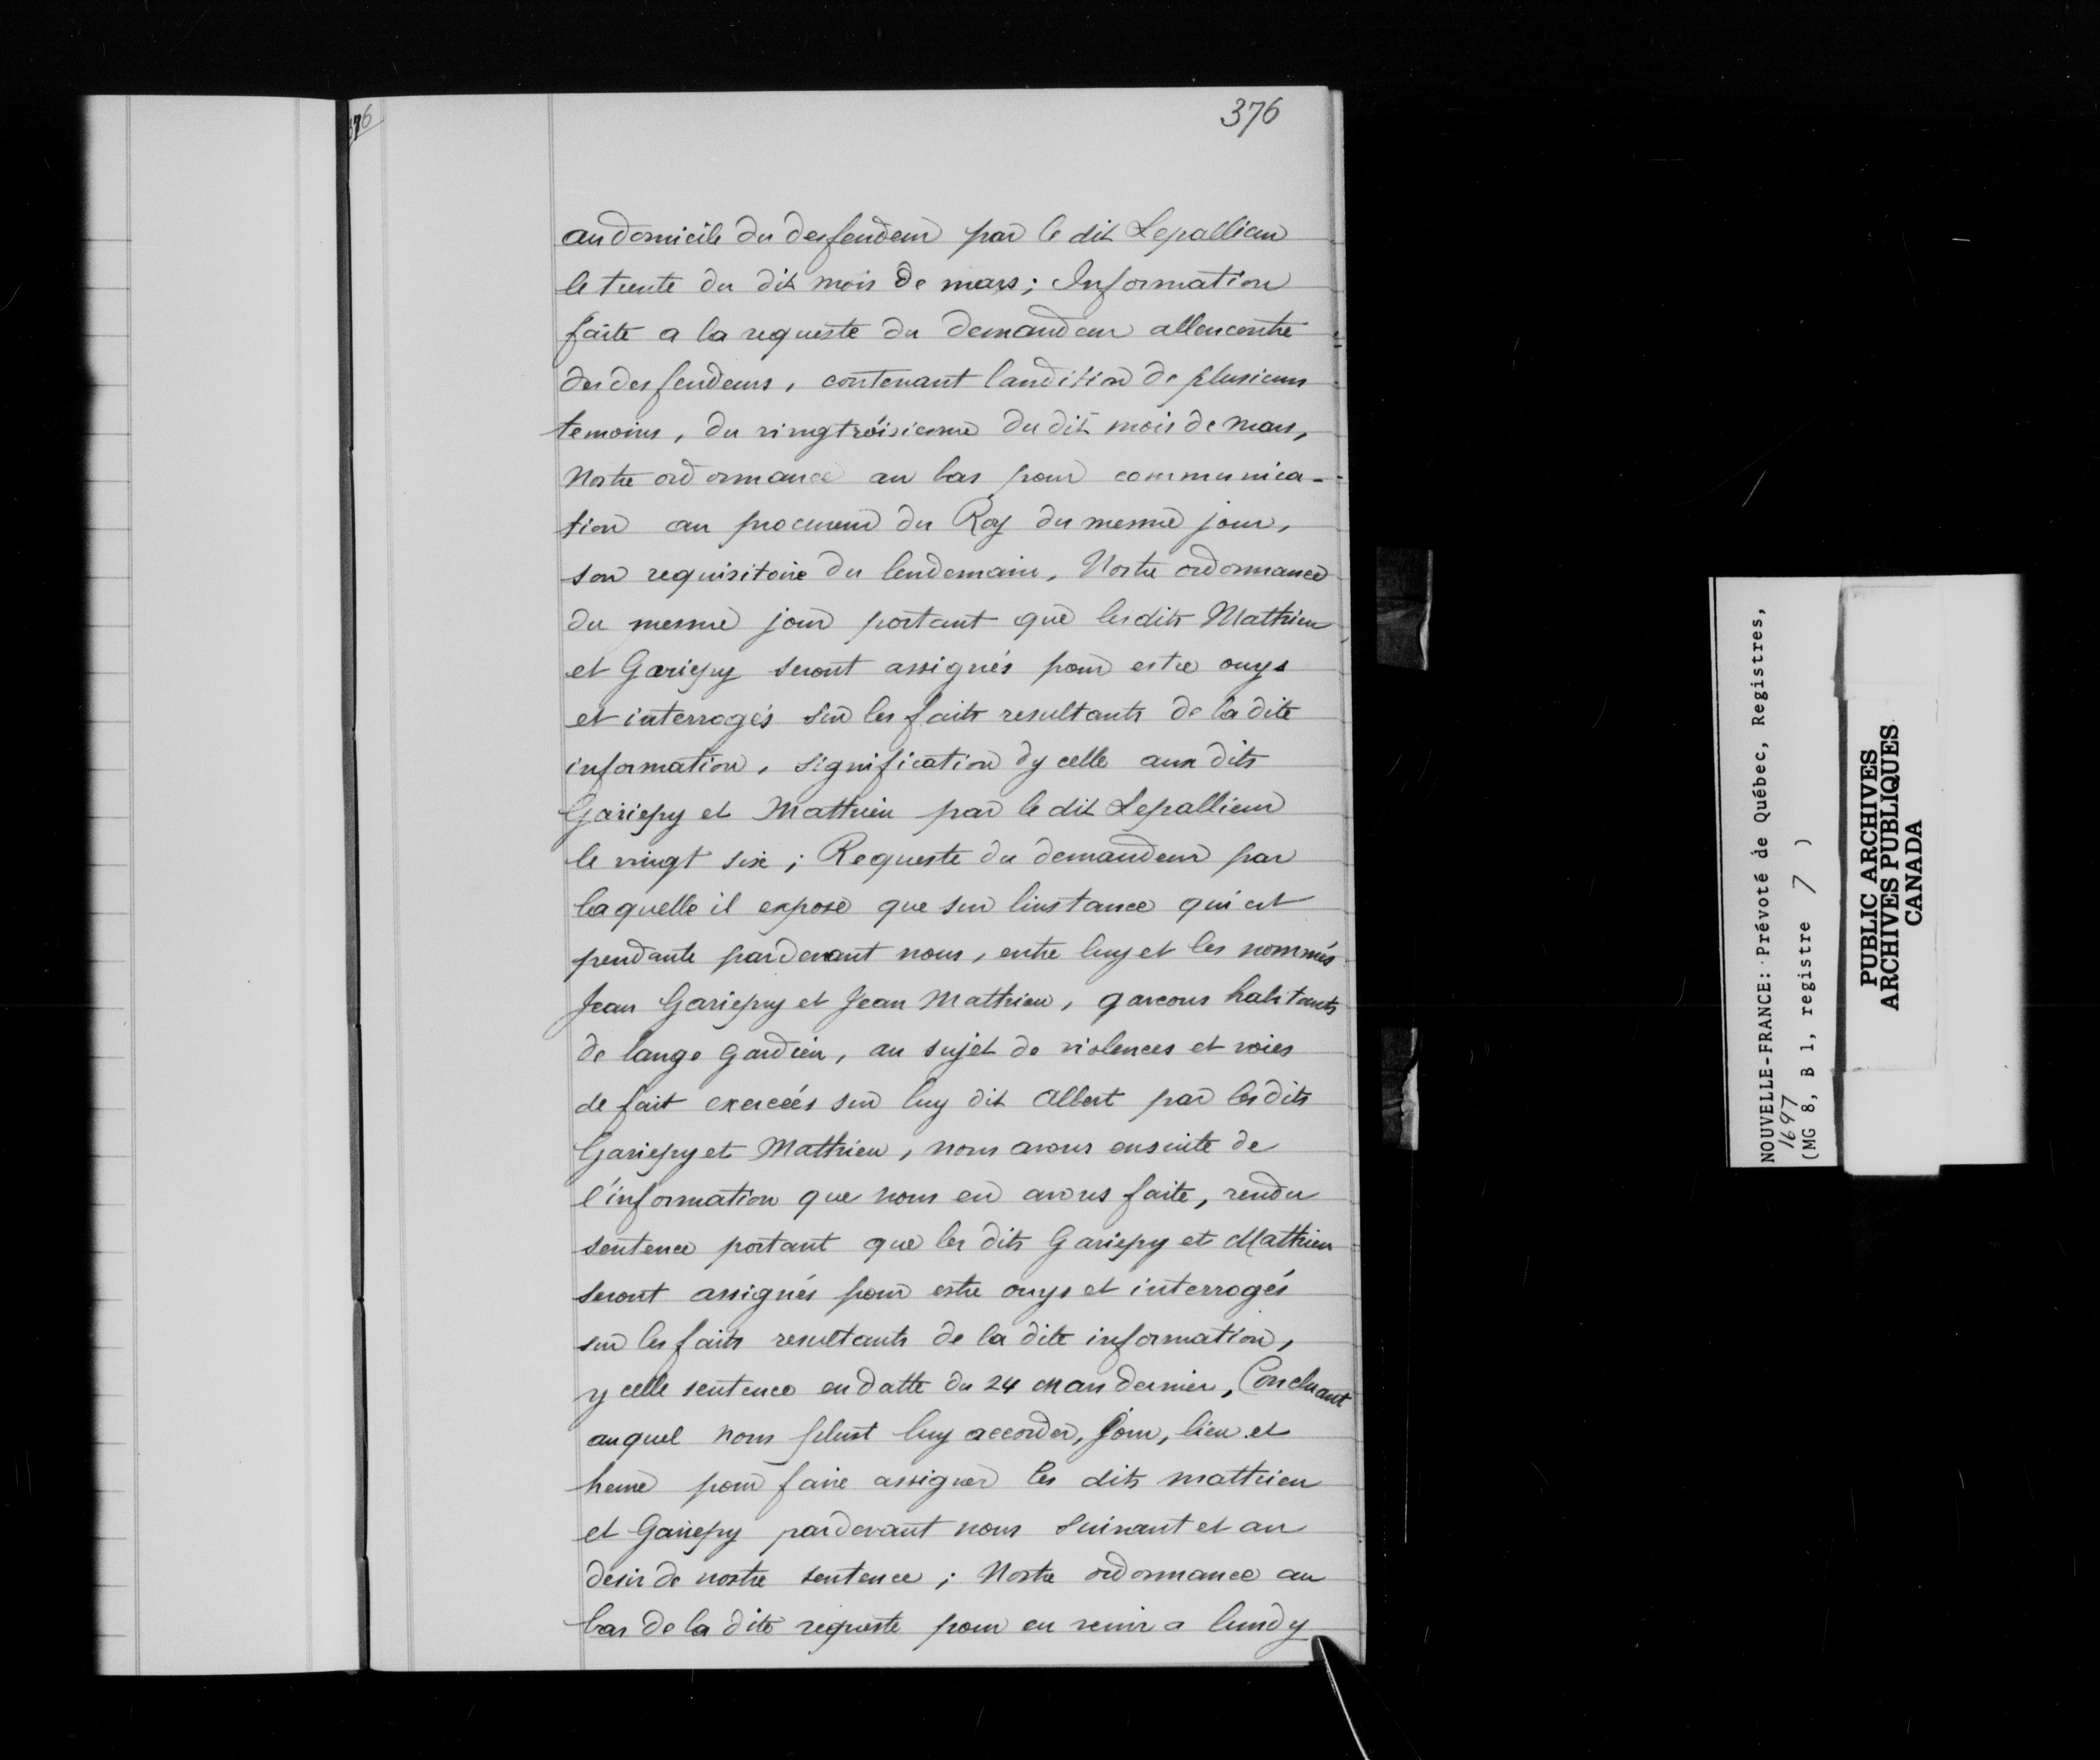 376
376
au domicile du desfendeur par le dit Lepallieur
le trente du dit mois de mars ; Information
faite a la requeste du demandeur allencontre
des desfendeurs, contenant laudition de plusieurs
temoins, du vingtroisiesme du dit mois de mars,
Nostre ordonnance au bas pour communica-
tion au procureur du Roy du mesme jour,
son requisitoire du lendemain, Nostre ordonnance
du mesme jour portant que lesdits Mathieu
et Gariepy seront assignés pour estre ouys
et interrogés sur les faits resultants de la dite
information, signification dy celle aux dits
Gariepy et Mathieu par le dit Lepallieur
le vingt six ; Requeste du demandeur par
laquelle il expose que sur linstance qui est
pendante pardevant nous, entre luy et les nommés
Jean Gariepy et Jean Mathieu, garcons habitants
de lange gardien, au sujet de violences et voies
de fait exercées sur luy dit Albert par lesdits
Gariepy et Mathieu, nous avons ensuite de
l'information que nous en avons faite, rendu
sentence portant que les dits Gariepy et Mathieu
seront assignés pour estre ouys et interrogés
sur les faits resultants de la dite information,
y celle sentence en datte du 24 mars dernier, Concluant
auquel nous plust luy accorder, jour, lieu et
heure pour faire assigner les dits mathieu
et Gariepy pardevant nous suivant et au
desir de nostre sentence ; Nostre ordonnance au
bas de la dite requeste pour en venir a lundy
NOUVELLE-FRANCE: Prévoté de Québec, Registres,
1697
(MG 8, B 1, registre 7 )
PUBLIC ARCHIVES
ARCHIVES PUBLIQUES
CANADA